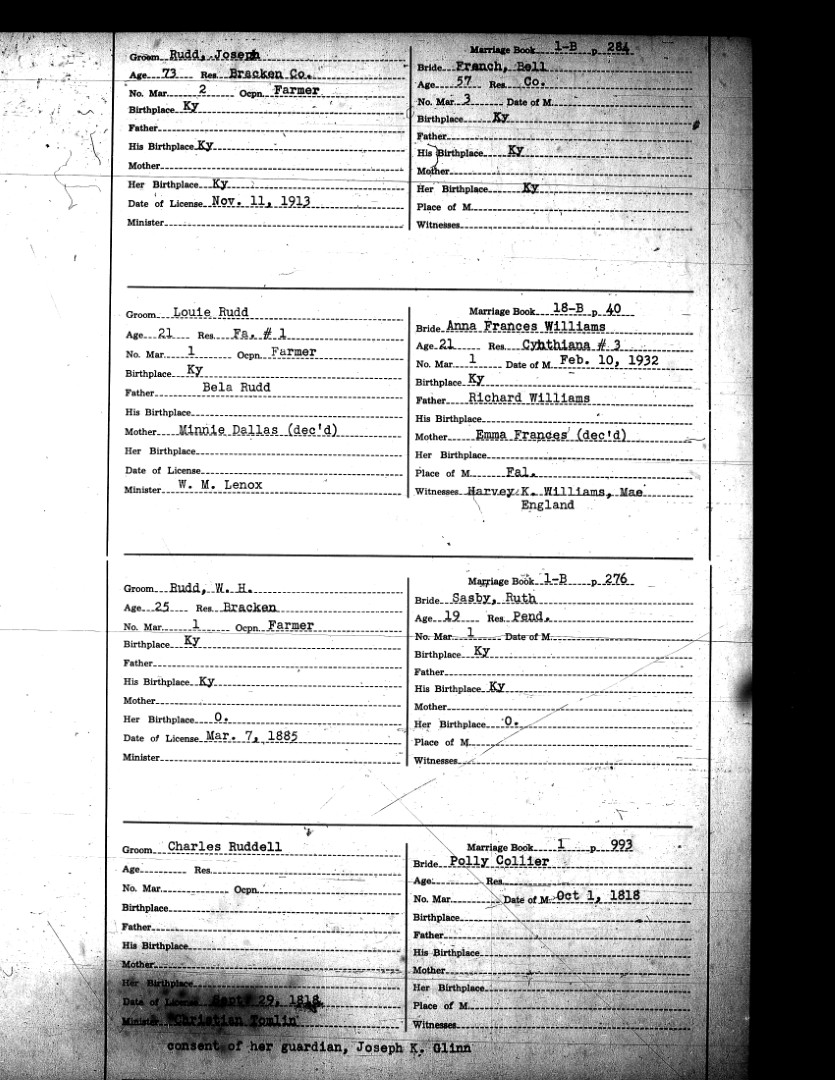 Groom Rudd, Joseph
Age 73 Res. Bracken Co.
No. Mar. 2 Ocpn. Farmer
Birthplace Ky
Father
His Birthplace Ky
Mother
Her Birthplace Ky
Date of License Nov. 11, 1913
Minister
Marriage Book 1-B p. 284
Bride Franch, Bell
Age 57 Res. Co.
No. Mar. 3 Date of M.
Birthplace Ky
Father
His Birthplace Ky
Mother
Her Birthplace Ky
Place of M.
Witnesses
Groom Louie Rudd
Age 21 Res. Fa. # 1
No. Mar. 1 Ocpn. Farmer
Birthplace Ky
Father Bela Rudd
His Birthplace
Mother Minnie Dallas (dec'd)
Her Birthplace
Date of License
Minister W. M. Lenox
Marriage Book 18-B p. 40
Bride Anna Frances Williams
Age 21 Res. Cynthiana # 3
No. Mar. 1 Date of M. Feb. 10, 1932
Birthplace Ky
Father Richard Williams
His Birthplace
Mother Emma Frances (dec'd)
Her Birthplace
Place of M. Fal.
Witnesses Harvey K. Williams, Mae
England
Groom Rudd, W. H.
Age 25 Res. Bracken
No. Mar. 1 Ocpn. Farmer
Birthplace Ky
Father
His Birthplace Ky
Mother
Her Birthplace O.
Date of License Mar. 7, 1885
Minister
Marriage Book 1-B p. 276
Bride Sasby, Ruth
Age 19 Res. Pend.
No. Mar. 1 Date of M.
Birthplace Ky
Father
His Birthplace Ky
Mother
Her Birthplace O.
Place of M.
Witnesses
Groom Charles Ruddell
Age Res.
No. Mar. Ocpn.
Birthplace
Father
His Birthplace
Mother
Her Birthplace
Date of License Sept 29, 1818
Minister Christian Tomlin
Marriage Book 1 p. 993
Bride Polly Collier
Age Res.
No. Mar. Date of M. Oct 1, 1818
Birthplace
Father
His Birthplace
Mother
Her Birthplace
Place of M.
Witnesses
consent of her guardian, Joseph K. Glinn